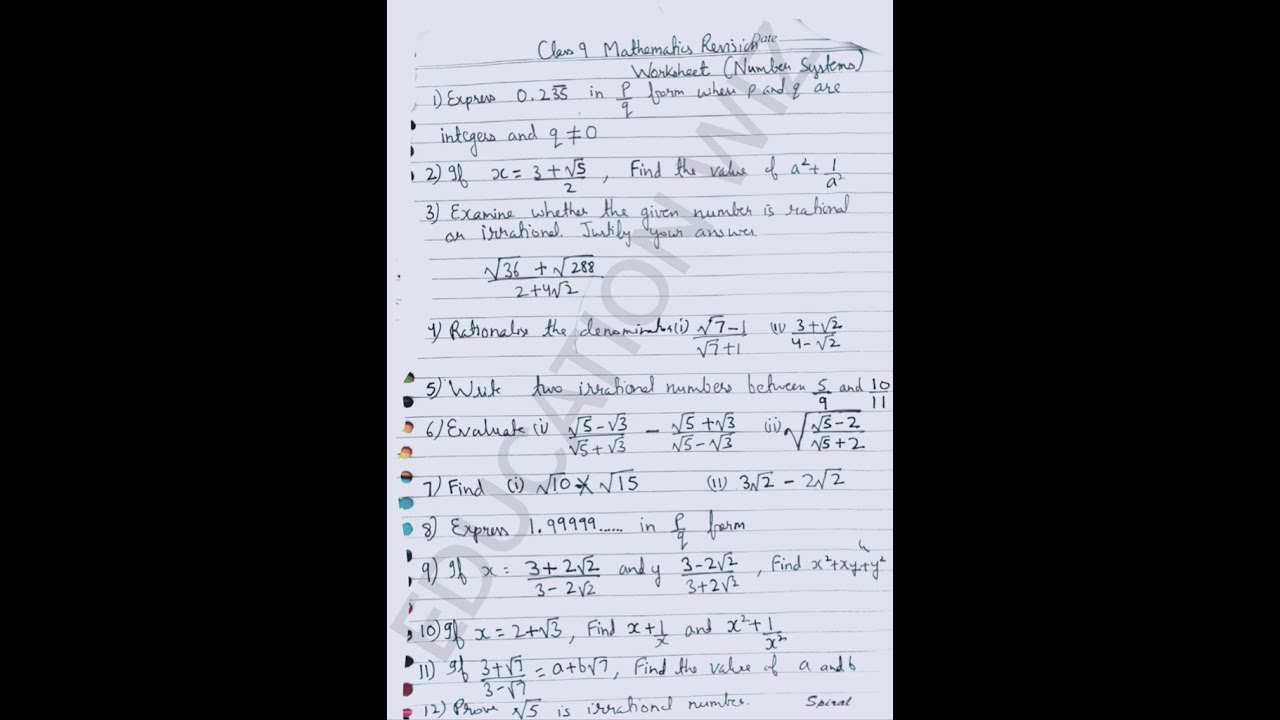 Date
Class 9 Mathematics Revision
Worksheet (Number Systems)
1) Express 0.2\overline{35} in p/q form where p and q are
integers and q ≠ 0
2) If x = (3 + √5)/2, Find the value of a² + 1/a²
3) Examine whether the given number is rational
or irrational. Justify your answer.
(√36 + √288)/(2 + 4√2)
4) Rationalise the denominator (i) (√7 - 1)/(√7 + 1) (ii) (3 + √2)/(4 - √2)
5) Write two irrational numbers between 5/9 and 10/11
6) Evaluate (i) (√5 - √3)/(√5 + √3) - (√5 + √3)/(√5 - √3) (ii) √((√5 - 2)/(√5 + 2))
7) Find (i) √10 × √15 (II) 3√2 - 2√2
8) Express 1.99999...... in p/q form
9) If x = (3 + 2√2)/(3 - 2√2) and y (3 - 2√2)/(3 + 2√2), Find x² + xy + y²
10) If x = 2 + √3, Find x + 1/x and x² + 1/x²
11) If (3 + √7)/(3 - √7) = a + b√7, Find the value of a and b
12) Prove √5 is irrational number.
Spiral
EDUCATION WIZ